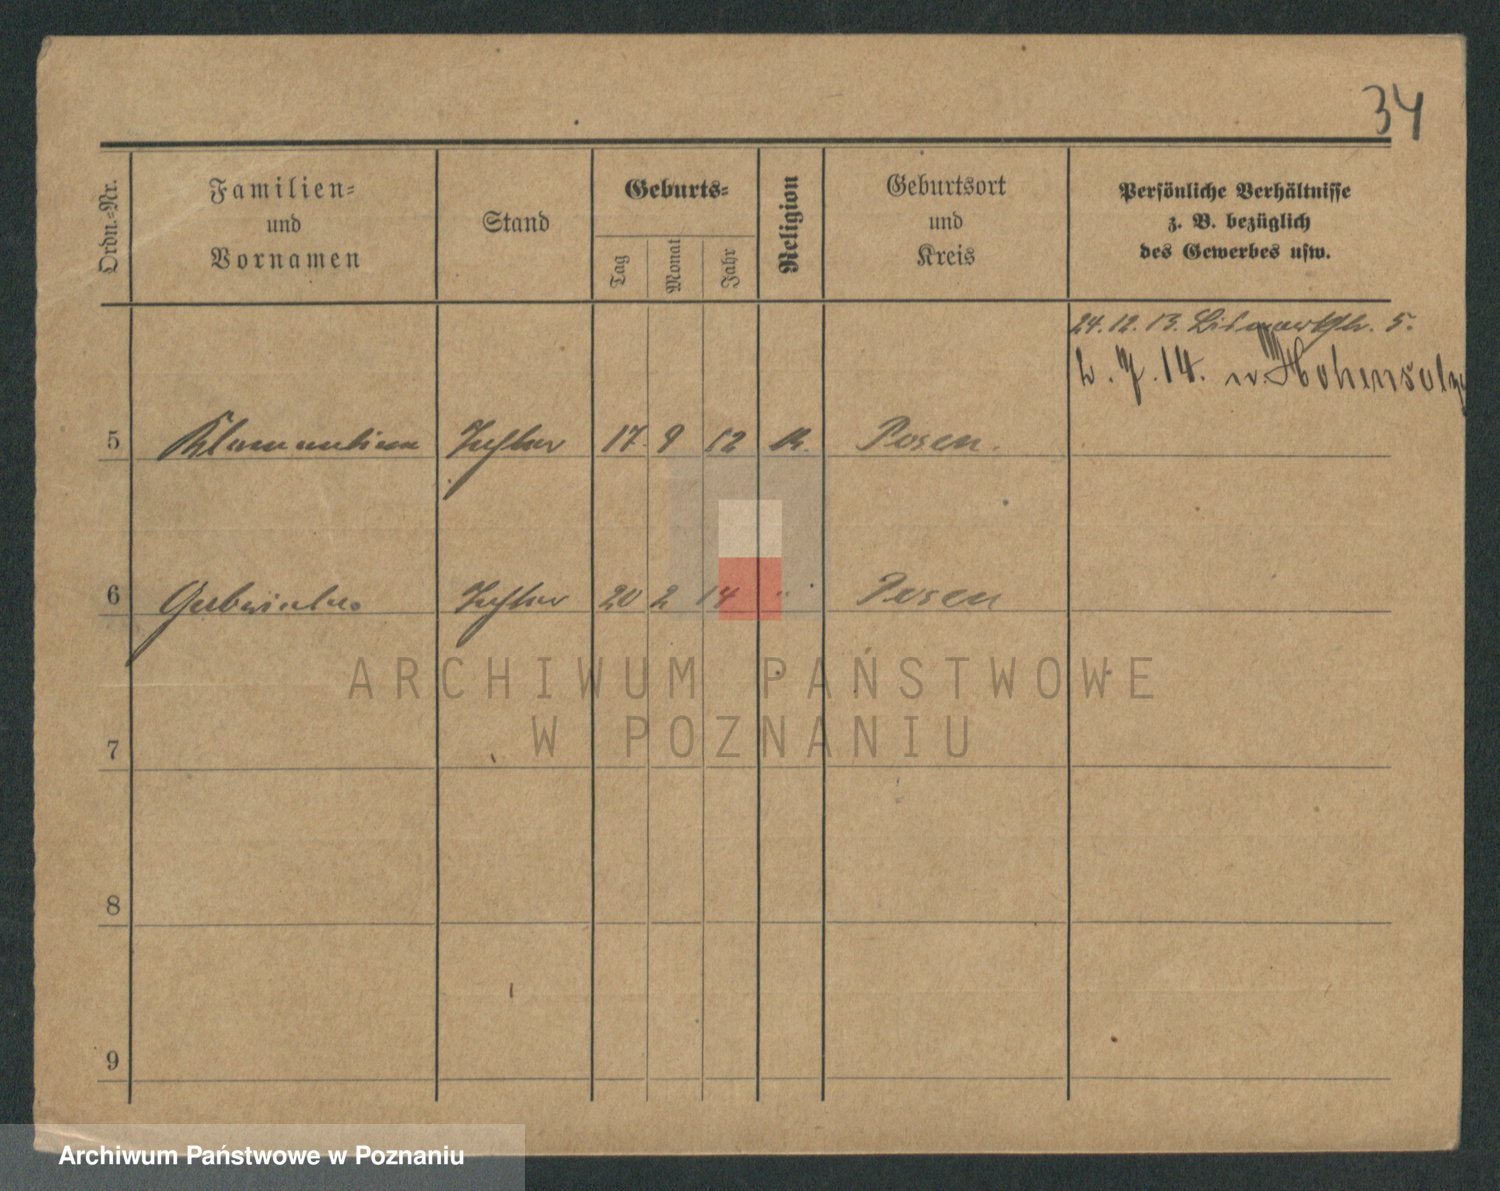 34
Ordn=Nr.
Familien=
und
Vornamen
Stand
Geburts=
Tag
Monat
Jahr
Religion
Geburtsort
und
Kreis
Persönliche Verhältnisse
z. B. bezüglich
des Gewerbes usw.
24. 12. 13. Bismarckstr. 5.
2. 7. 14. n. Hohensalza
5 Klementine Tochter 17. 9 12 K. Posen.
6 Tochter 20 2 14 " Posen
ARCHIWUM PAŃSTWOWE
W POZNANIU
7
8
9
Archiwum Państwowe w Poznaniu